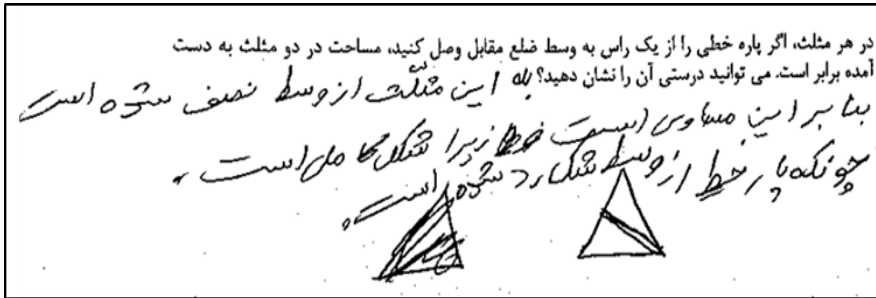 در هر مثلث، اگر پاره خطی را از یک راس به وسط ضلع مقابل وصل کنید، مساحت در دو مثلث به دست
آمده برابر است. می توانید درستی آن را نشان دهید؟ بله این مثلّث از وسط نصف شده است
بنا بر این مساوی است زیرا شکل کامل است.
چونکه پار خط از وسط شکل رد شده است.